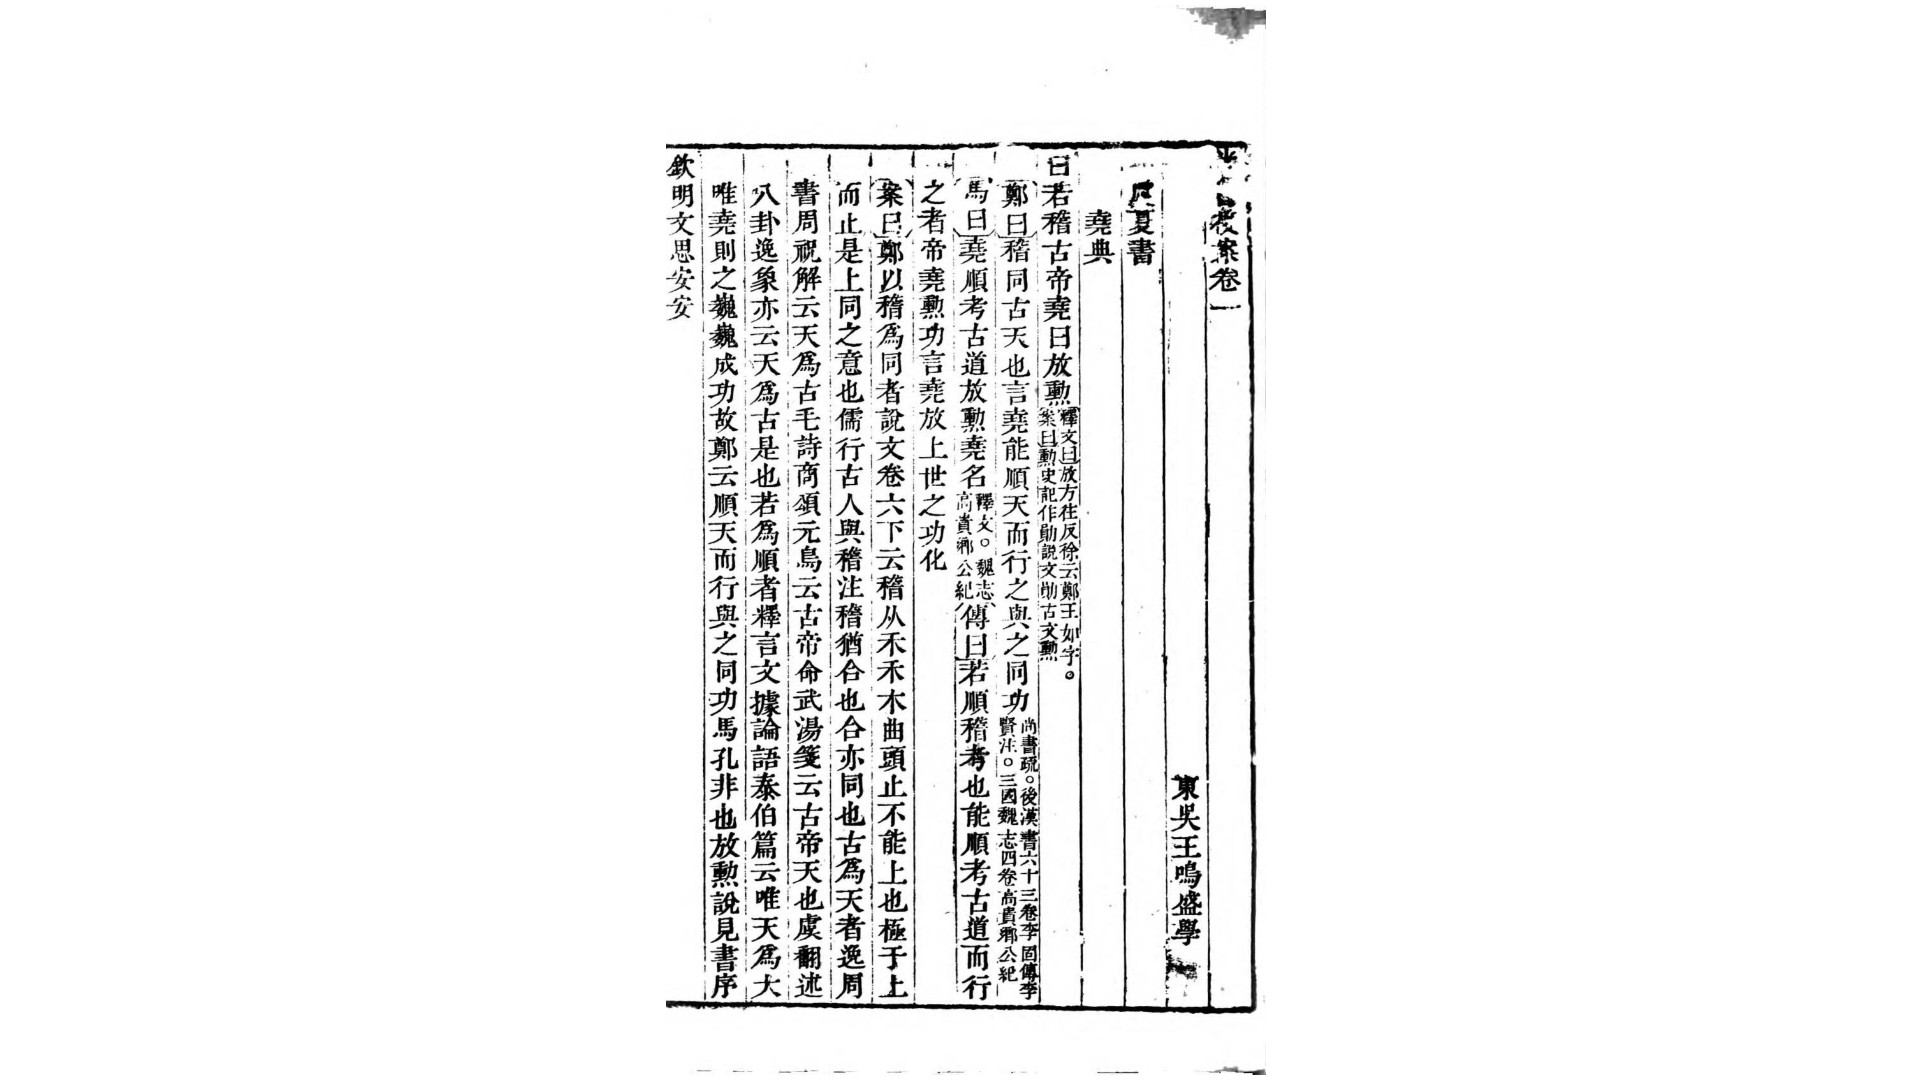 後案卷一
東吳王鳴盛學
夏書
堯典
曰若稽古帝堯曰放勲釋文曰放方往反徐云鄭王如字。案曰勲史記作勛說文勛古文勲
鄭曰稽同古天也言堯能順天而行之與之同功尚書疏。後漢書六十三卷李固傳李賢注。三國魏志四卷高貴鄉公紀
馬曰堯順考古道放勲堯名釋文。魏志高貴鄉公紀傳曰若順稽考也能順考古道而行
之者帝堯勲功言堯放上世之功化
案曰鄭以稽爲同者說文卷六下云稽从禾禾木曲頭止不能上也極于上
而止是上同之意也儒行古人與稽注稽猶合也合亦同也古爲天者逸周
書周祝解云天爲古毛詩商頌元鳥云古帝命武湯箋云古帝天也虞翻述
八卦逸象亦云天爲古是也若爲順者釋言文據論語泰伯篇云唯天爲大
唯堯則之巍巍成功故鄭云順天而行與之同功馬孔非也放勲說見書序
欽明文思安安